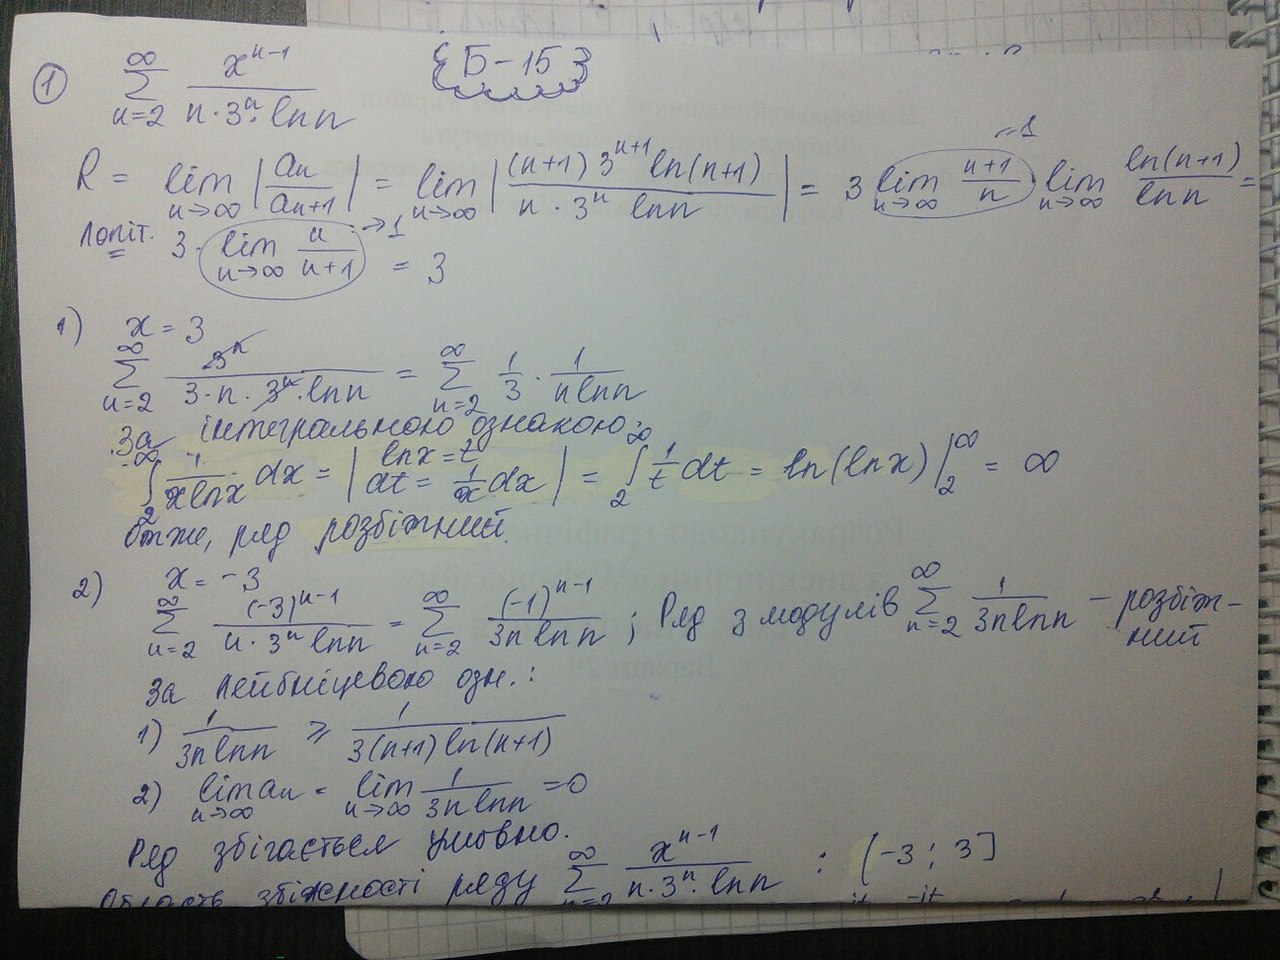 ① ∞ ∑ n=2 x^{n-1} / (n·3^n·ln n) {Б-15}
R = lim n→∞ |a_n / a_{n+1}| = lim n→∞ |(n+1) 3^{n+1} ln(n+1) / (n·3^n ln n)| = 3 lim n→∞ (n+1)/n →1 lim n→∞ ln(n+1)/ln n =
Лопіт. = 3· lim n→∞ n/(n+1) →1 = 3
1) x = 3
∞ ∑ n=2 3^n / (3·n·3^n·ln n) = ∞ ∑ n=2 1/3 · 1/(n ln n)
За інтегральною ознакою:
∞ ∫ 2 1/(x ln x) dx = | ln x = t dt = 1/x dx | = ∞ ∫ 2 1/t dt = ln(ln x) |_2^∞ = ∞
Отже, ряд розбіжний.
2) x = -3
∞ ∑ n=2 (-3)^{n-1} / (n·3^n ln n) = ∞ ∑ n=2 (-1)^{n-1} / (3n ln n) ; Ряд з модулів ∞ ∑ n=2 1/(3n ln n) – розбіж-
ний
За Лейбніцевою озн.:
1) 1/(3n ln n) ≥ 1/(3(n+1) ln(n+1))
2) lim n→∞ a_n = lim n→∞ 1/(3n ln n) = 0
Ряд збігається умовно.
Область збіжності ряду ∞ ∑ n=2 x^{n-1} / (n·3^n·ln n) : [-3 ; 3]